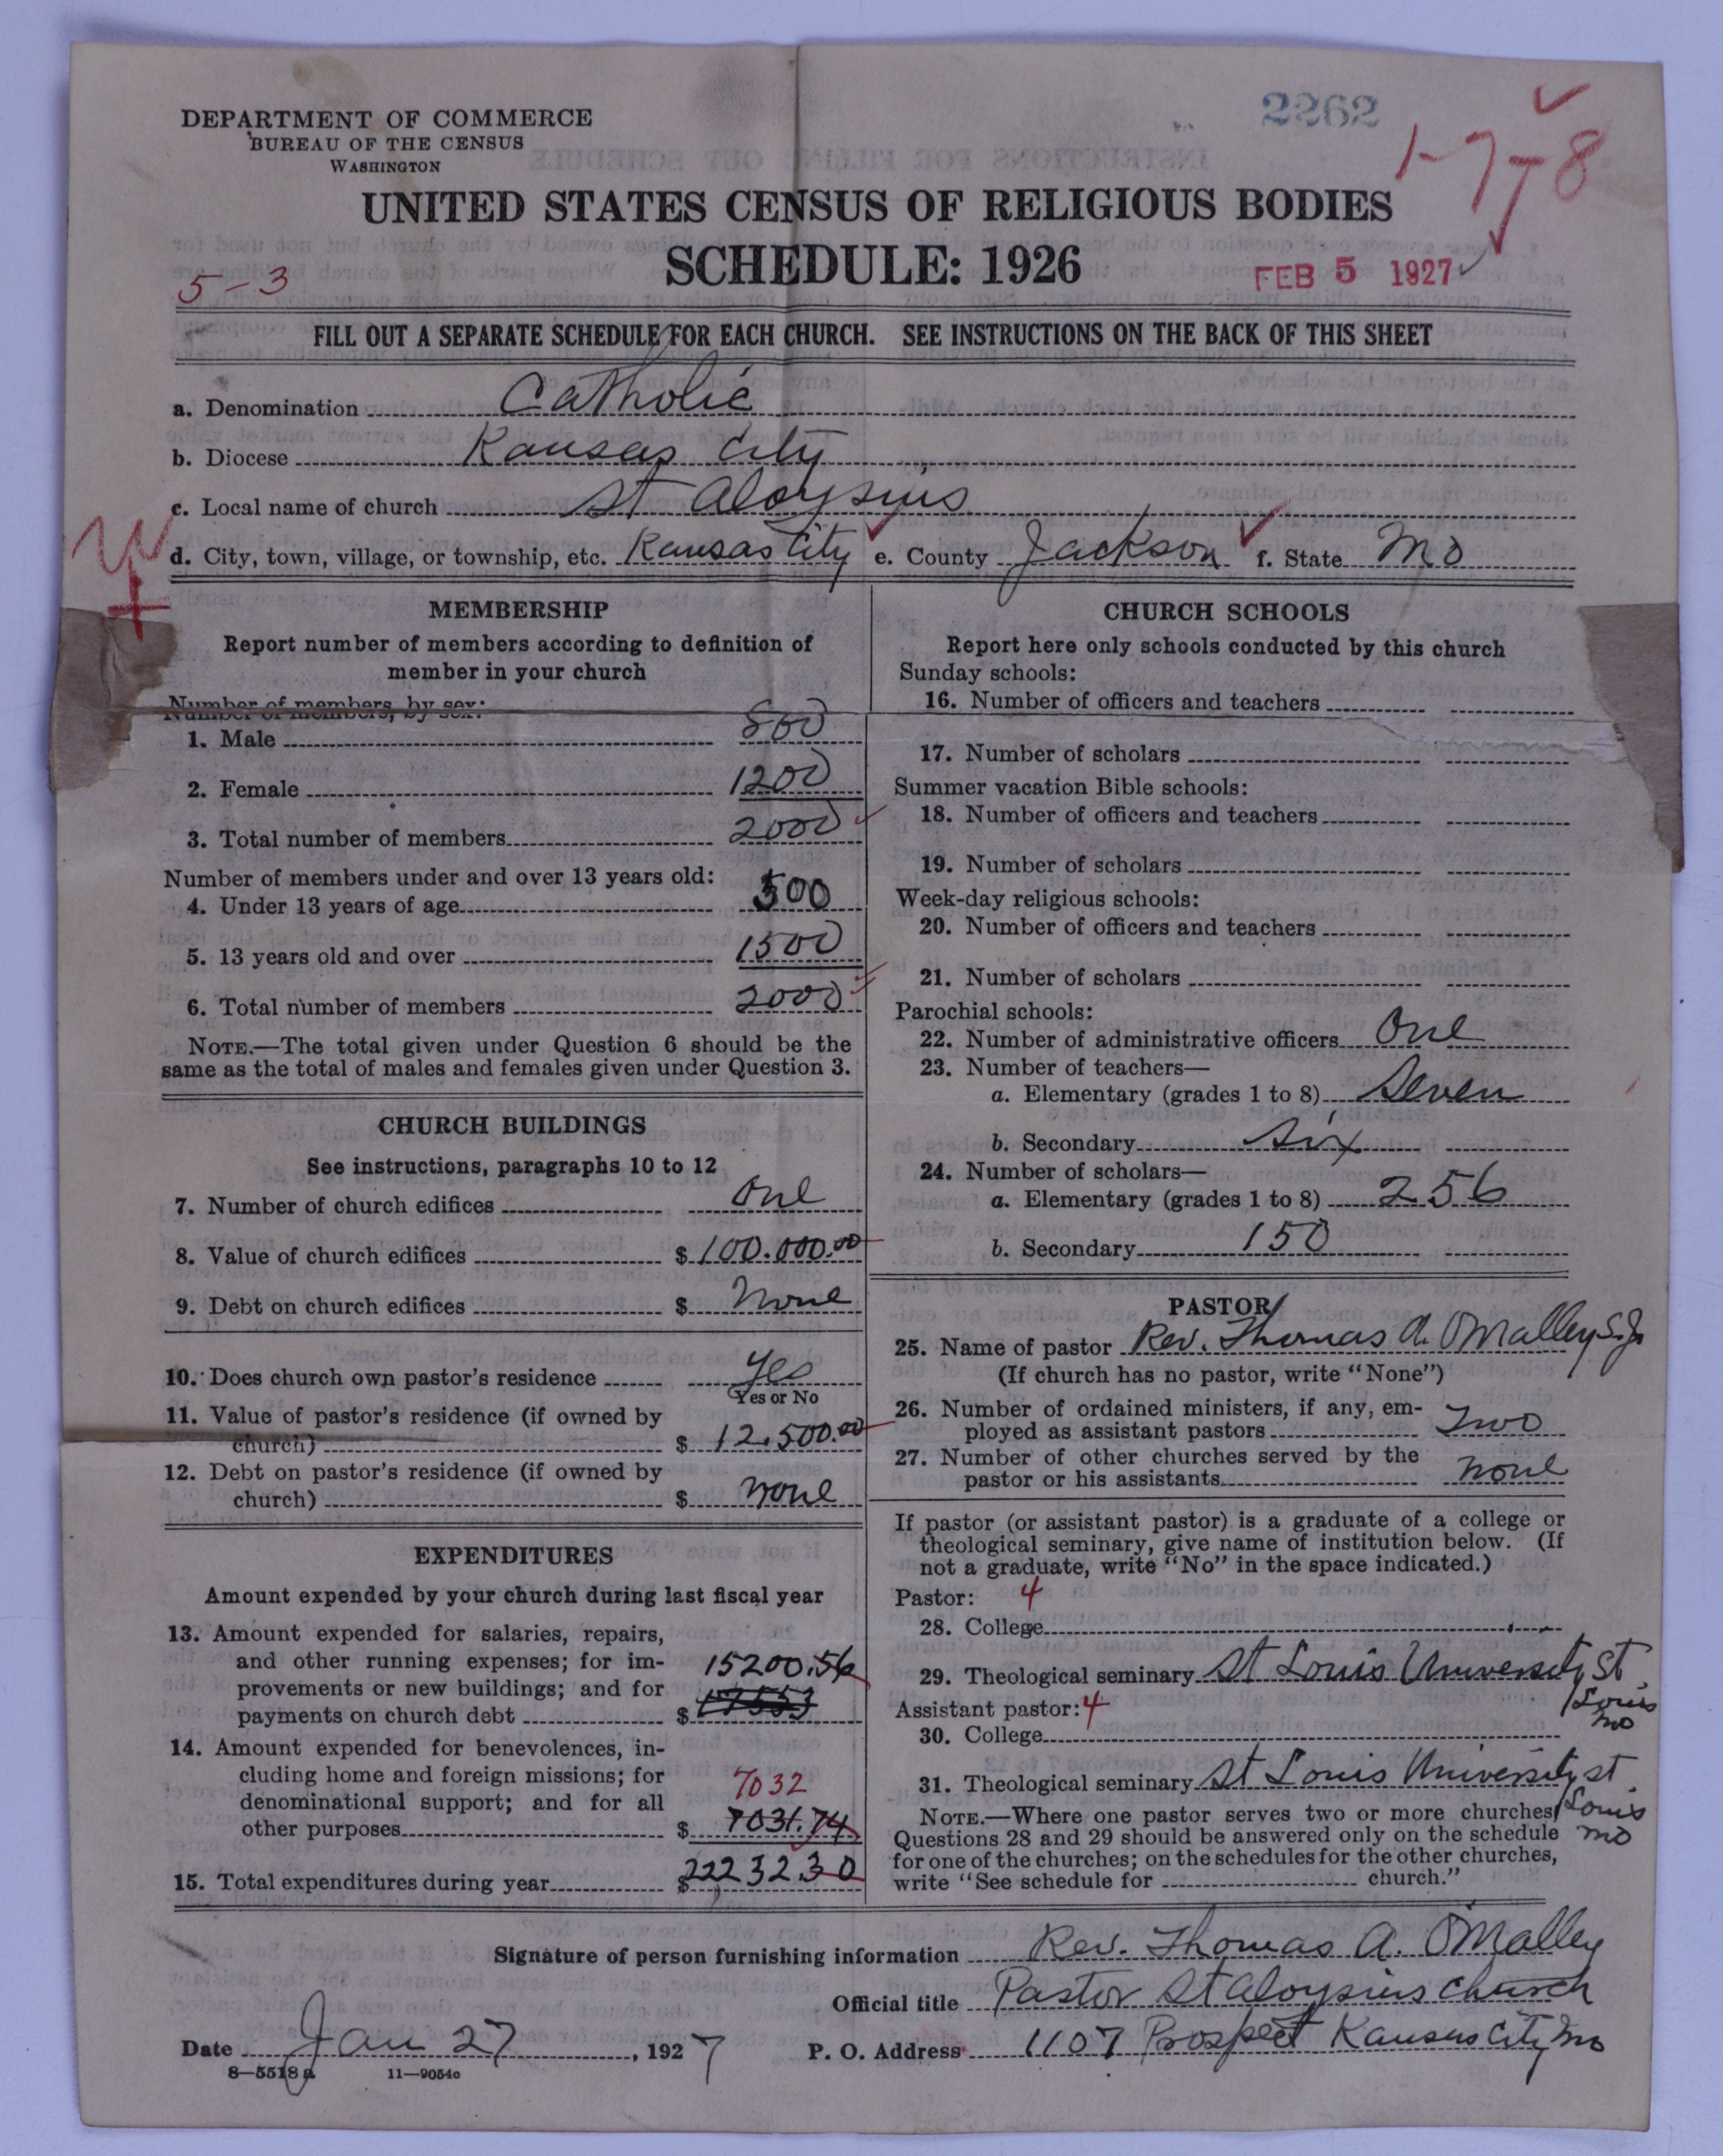 DEPARTMENT OF COMMERCE
BUREAU OF THE CENSUS
WASHINGTON
2262
1-7-8
UNITED STATES CENSUS OF RELIGIOUS BODIES
SCHEDULE: 1926
5-3
FEB 5 1927
FILL OUT A SEPARATE SCHEDULE FOR EACH CHURCH. SEE INSTRUCTIONS ON THE BACK OF THIS SHEET
a. Denomination Catholic
b. Diocese Kansas City
c. Local name of church St Aloysius
d. City, town, village, or township, etc. Kansas City e. County Jackson f. State Mo
MEMBERSHIP
Report number of members according to definition of
member in your church
Number of members, by sex:
1. Male 800
2. Female 1200
3. Total number of members 2000
Number of members under and over 13 years old:
4. Under 13 years of age 500
5. 13 years old and over 1500
6. Total number of members 2000
NOTE.—The total given under Question 6 should be the
same as the total of males and females given under Question 3.
CHURCH BUILDINGS
See instructions, paragraphs 10 to 12
7. Number of church edifices One
8. Value of church edifices $ 100.000.00
9. Debt on church edifices $ None
10. Does church own pastor's residence Yes
Yes or No
11. Value of pastor's residence (if owned by
church) $ 12.500.00
12. Debt on pastor's residence (if owned by
church) $ None
EXPENDITURES
Amount expended by your church during last fiscal year
13. Amount expended for salaries, repairs,
and other running expenses; for im-
provements or new buildings; and for
payments on church debt $ 15200.56
14. Amount expended for benevolences, in-
cluding home and foreign missions; for
denominational support; and for all
7032
other purposes $ 7031.74
15. Total expenditures during year $ 22232.30
CHURCH SCHOOLS
Report here only schools conducted by this church
Sunday schools:
16. Number of officers and teachers
17. Number of scholars
Summer vacation Bible schools:
18. Number of officers and teachers
19. Number of scholars
Week-day religious schools:
20. Number of officers and teachers
21. Number of scholars
Parochial schools:
22. Number of administrative officers One
23. Number of teachers—
a. Elementary (grades 1 to 8) Seven
b. Secondary Six
24. Number of scholars—
a. Elementary (grades 1 to 8) 256
b. Secondary 150
PASTOR
25. Name of pastor Rev. Thomas A. O'Malley S.J.
(If church has no pastor, write "None")
26. Number of ordained ministers, if any, em-
ployed as assistant pastors Two
27. Number of other churches served by the
pastor or his assistants None
If pastor (or assistant pastor) is a graduate of a college or
theological seminary, give name of institution below. (If
not a graduate, write "No" in the space indicated.)
Pastor: 4
28. College
29. Theological seminary St Louis University St
Louis
Mo
Assistant pastor: 4
30. College
31. Theological seminary St Louis University St
Louis
Mo
NOTE.—Where one pastor serves two or more churches
Questions 28 and 29 should be answered only on the schedule
for one of the churches; on the schedules for the other churches,
write "See schedule for church."
Signature of person furnishing information Rev. Thomas A. O'Malley
Official title Pastor St Aloysius Church
Date Jan 27, 1927 P. O. Address 1107 Prospect Kansas City Mo
8—5518 a 11—9054c